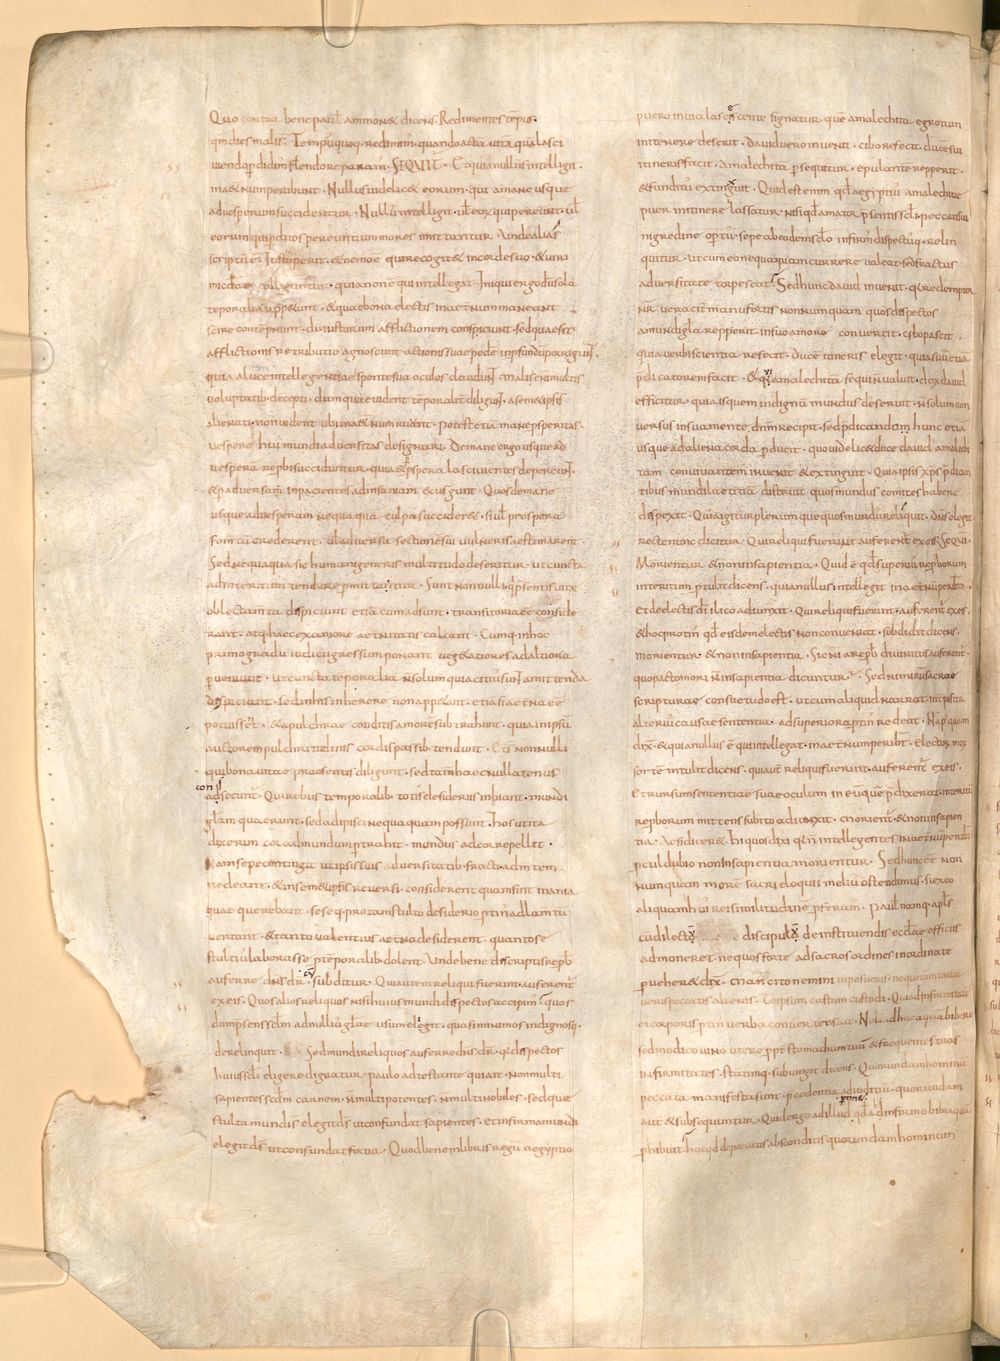 Quo contra bene paul ammon& dicens. Redimentes tēpus.
qm̄ dies mali sī. Tempus quoq; redimim; quando actā uitā quā lasci
uiendo p̄didim; flendo reparam;. SEQUIT̄. Et quia nullus intellegit.
in aet̄num peribunt. Nullus uidelic& eorum. qui a mane usque
ad uesperum succidentur. Nullus intellegit. ul̄ eoꝝ qui pereunt. ul̄
eorum qui p̄ditos pereuntium mores imitantur. Unde alias
scriptū ē. Iustus perit. & nemo ē qui recogit& in corde suo. & uiri
mic̄dae colliguntur. quia non ē qui intellegat. Iniqui ergo dū sola
tēporalia app&unt. & quae bona electis in aet̄num maneant
scire contēpnunt. dū iustorum afflictionem conspiciunt. sed quae sit
afflictionis retributio agnoscunt actionis suae pedē in p̄fundū porrigunt̄.
quia a luce intellegentiae sponte sua oculos claudunt̄. malis enim multis
uoluptatib; decepti. dum quae uident tēporalit̄ diligunt̄. a sem&ipsis
alienati. non uident ubi in aet̄num ruunt. Potest etiā mane psperitas.
uespere hui; mundi aduersitas designari. De mane ergo usque ad
uesperā rep̄bi succiduntur. quia & p̄spera lasciuientes depereunt̄.
& p aduersam inpacientes ad insaniam exsurgunt. Quos de mane
usque ad uesperam nequaquā culpa succider&. si ul̄ prospera
fomtū crederent. ul̄ aduersa sectionē sui uulneris aestimarent.
Sed nequaquā sic humani generis multitudo deseritur. ut cuncta
ad interitum tendere p̄mittatur. Sunt nonnulli. q̄ p̄sentis uitę
oblectamta dispiciunt etiā cum adsunt. transitoria ēē conside
rant. atq; haec ex amore aet̄nitatis calcant. Cumq; in hoc
primo gradu iudicii gressum ponant uegetiores ad altiora
p̄ueniunt. ut cuncta tēporalia n̄ solum quia citius sunt amittenda
dispiciant. sed inhis inherere non app&ant. etiā si aet̄na ēē
potuissent. & a pulchrae conditis amorē subtrahunt. quia in ipsū
auctorem pulchritudinis cordis passib; tendunt. Et s̄ nonnulli
qui bona uitae praesentis diligunt. sed tam haec nullatenus
adsecunt̄. Qui rebus temporalib; totis desideriis inhiant. mundi
gl̄am quaerunt. sed adipisci nequaquam possunt. Hos ut ita
dixerim cor ad mundum p̄trahit. mundus ad cor repellit.
Nam sepe contingit ut ipsis suis aduersitatib; fracti. ad mtem
redeant. & in sem&ipsis reuersi. considerent quam sint inania
quae querebant. seseq; pro tam stulto desiderio p̄tinus ad lamtū
uertant. & tanto ualentius aet̄na desiderent. quanto se
stultius laborasse p̄ tēporalib; dolent. Unde bene discriptis rep̄b
auferre dns̄ dr̄. subditur. Qui autem reliqui fuerint. auferent̄
ex eis. Quos alios reliquos nisi huius mundi dispectos accipim;. quos
dum p̄sens sclm̄ ad nullū glae usum elegit. quasi minimos indignosq;
derelinquit. Sed mundi reliquos auferre dns̄ dr̄. q̄ dispectos
huius sc̄li eligere dignatur. paulo adtestante qui ait. Non multi
sapientes scdm carnem. n̄ multi potentes. n̄ multi nobiles. sed quae
stulta mundi s̄. elegit ds̄. ut confundat sapientes. et infirma mundi
elegit ds̄. ut confundat fortia. Quod bene in libris regū aegyptio
puero in uia lascescente signatur. quē amalechita egrotum
in itinere deserit. Dauid uero inuenit. cibo reficit. ducē sui
itineris facit. Amalechitā p̄sequitur. epulantē repperit.
& funditus extinguit. Quid est enim qđ aegyptius amalechitae
puer in itinere lassatur. nisi qđ amator p̄sentis scl̄i. peccati sui
nigredine op̄tus. sepe ab eodem scl̄o infirm; dispectusq; relin
quitur. ut cum eo nequaquam currere ualeat. sed fractus
aduersitate torpescat. Sed hunc dauid inuenit. q̄ redemptor
nr̄. uerac̄ manu fortis nonnunquam quos dispectos
a mundi gla repperit. in suo amore conuertit. cibo pascit.
quia uerbi scientia reficit. Ducē itineris elegit. quia suū etiā
p̄dicatorem facit. & qui amalechitā sequi n̄ ualuit. dux dauid
efficitur. quia is quem indignū mundus deseruit. n̄ solum con
uersus in sua mente dn̄m recipit. sed p̄dicandam hunc etiā
usque ad aliena corda p̄ducit. quo uidelic& duce dauid amalechi
tam conuiuantem inuenit & extinguit. Quia ipsis xps̄ p̄dican
tibus mundi laetitiā distruit quos mundus comites habere
dispexit. Quia igitur plerumque quos mundus reliquit. dns̄ elegit
recte nunc dicitur. Qui reliqui fuerint auferent̄ ex eis. SEQUI.
Morientur & non in sapientia. Quid ē qđ superius rep̄borum
interitum p̄tulit dicens. quia nullus intellegit in aet̄nū peribt̄.
Et de electis di ilico adiunxit. Qui reliqui fuerint. auferent̄ ex eis.
& hoc protin; qđ eisdem electis non conueniat. subdidit dicens.
morientur. & non in sapientia. Si enī a rep̄b diuinitus auferent̄.
quo pacto mori n̄ in sapientia dicuntur. Sed nimirū sacrae
scripturae consuetudo est. ut cum aliquid narrat. int̄posita
alterius causae sententia. ad superiora p̄tin; redeat. Nā p̄quam
dix̄. & quia nullus ē qui intellegat. in aet̄nū peribt̄. electoꝝ mox
sortē intulit dicens. qui aut̄ reliqui fuerint. auferent̄ ex eis.
Et rursum sententiae suae oculum in eū quē p̄dixerat. interitū
rep̄borum mittens subito adiunxit. morient̄. & non in sapien
tia. Ac si dicer&. hi quos dixi q̄ n̄ intellegentes in aet̄nū peribt̄
p̄cul dubio non in sapientia morientur. Sed hunc ēē non
nunquam morē sacri eloquii melius ostendimus. si ex eo
aliquam hui; rei similitudinē p̄feram;. Paul; namq; apl̄s
cū dilectū discipulū de instituendis eccl̄ae officiis
admoneret. ne quos forte ad sacros ordines inordinate
p̄ueher& dix̄. manū cito nemini inposueris. neque communic̄
ueris peccatis alienis. Teipsum castum custodi. Qui ad infirmitatē
ei corporis p̄tin; uerba conuertens ait. Noli adhuc aquā bibere
sed modico uino utere. ppt stomachum tuū. & frequentes tuas
infirmitates. statimq; subiungit dicens. Quorundam hominū
peccata manifesta sunt. p̄cedentia ad iudiciū. quorundam
aut̄ & subsequuntur. Quid ergo ad illud p̄tin& qđ infirmo bibi aquā
p̄hibuit. hoc qđ de peccatis absconditis quorundam hominum